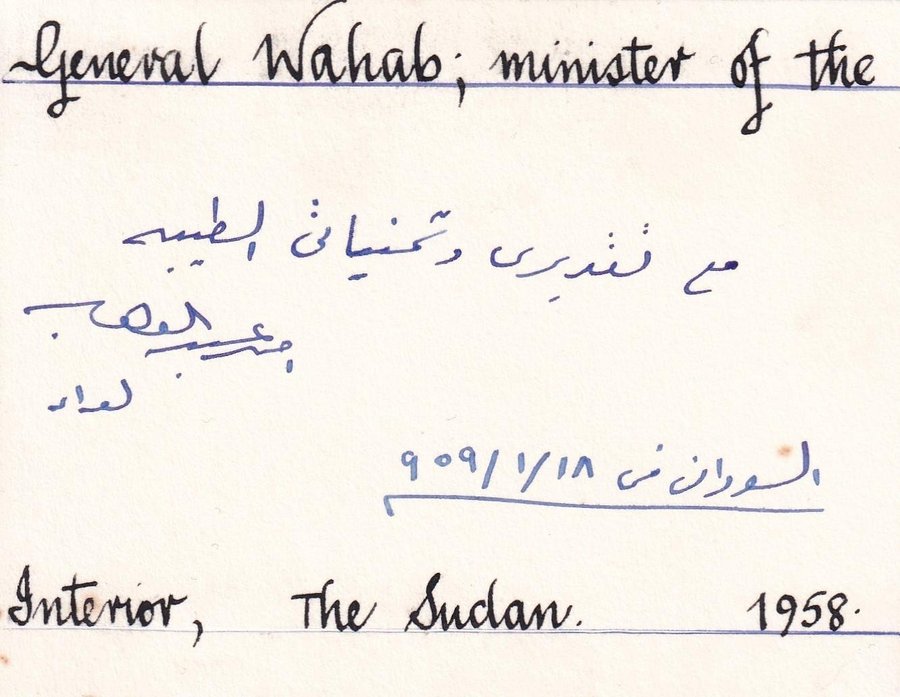 General Wahab; minister of the
مع تقديرى وتمنياتى الطيبه
احمد عبد الوهاب
لواء
السودان فى ٩٥٩/١/١٨
Interior, The Sudan. 1958.